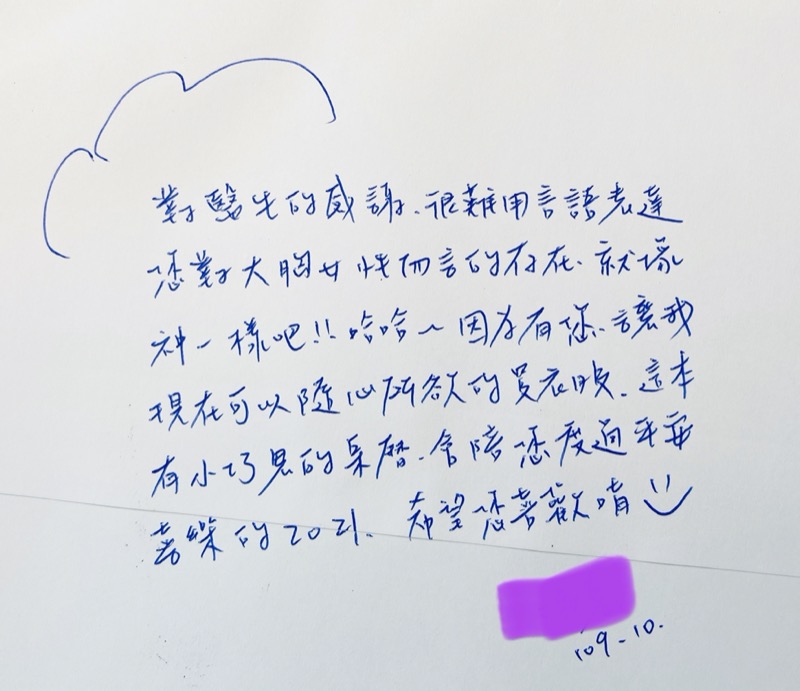 對醫生的感謝、很難用言語表達
您對大胸女性而言的存在、就像
神一樣吧!!哈哈~因為有您、讓我
現在可以隨心所欲的買衣服、這本
有小巧思的桌曆、會陪您度過平安
喜樂的2021、希望您喜歡唷
109-10.